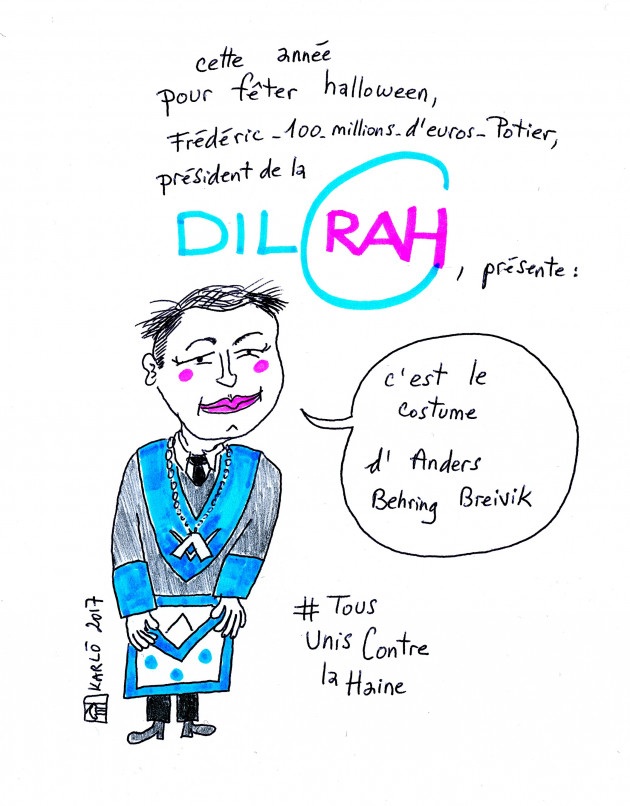 cette année
pour fêter halloween,
Frédéric_100_millions_d'euros_Potier,
président de la
DILCRAH
, présente :
c'est le
costume
d'Anders
Behring Breivik
# Tous
Unis Contre
la Haine
KARLÖ 2017